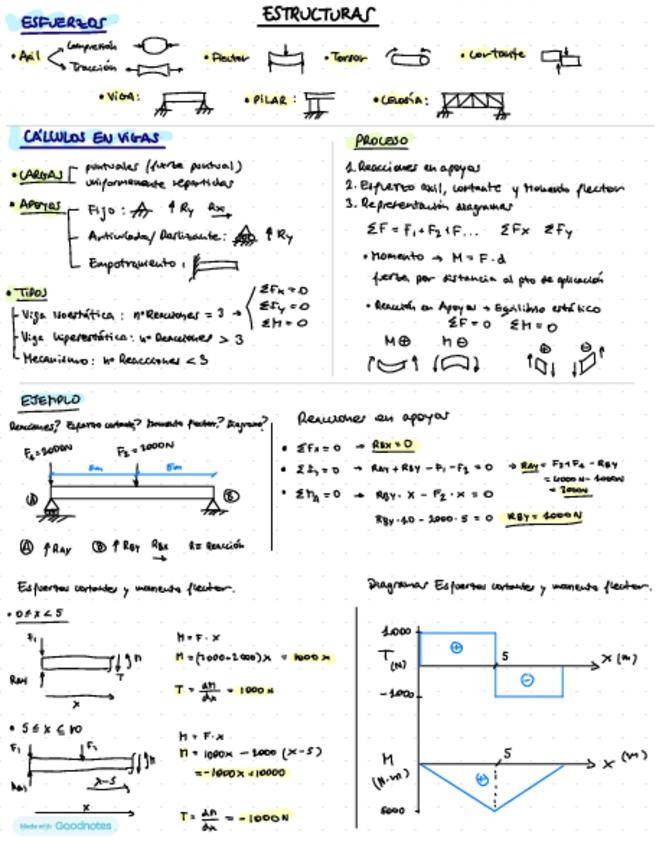 ESTRUCTURAS
ESFUERZOS
• Axil
Compresión
Tracción
• Flector
• Torsor
• Cortante
• VIGA:
• PILAR:
• CELOSÍA:
CÁLCULOS EN VIGAS
• CARGAS
puntuales (fuerza puntual)
uniformemente repartidas
• APOYOS
Fijo: ↑ Ry Rx
Articulado/Deslizante: ↑ Ry
Empotramiento:
• TIPOS
Viga isostática: nº Reacciones = 3 →
ΣFx = 0
ΣFy = 0
ΣM = 0
Viga hiperestática: nº Reacciones > 3
Mecanismo: nº Reacciones < 3
PROCESO
1. Reacciones en apoyos
2. Esfuerzo axil, cortante y Momento flector
3. Representación diagramas
ΣF = F₁+F₂+F... ΣFx ΣFy
• Momento → M = F·d
fuerza por distancia al pto de aplicación
• Reacción en Apoyos → Equilibrio estático
ΣF = 0 ΣM = 0
M ⊕ M ⊖ ⊕ ⊖
EJEMPLO
Reacciones? Esfuerzo cortante? Momento flector? Diagrama?
F₁=2000N F₂=2000N
5m 5m
A B
Ⓐ ↑ RAY Ⓑ ↑ RBY RBX R = Reacción
Reacciones en apoyos
• ΣFx = 0 → RBX = 0
• ΣFy = 0 → RAY + RBY - F1 - F2 = 0 → RAY = F2+F1 - RBY
= 4000N - 1000N
= 3000N
• ΣMA = 0 → RBY · X - F2 · X = 0
RBY·10 - 2000·5 = 0 RBY = 1000N
Esfuerzos cortantes y momento flector.
• 0 ≤ x < 5
F₁
RAY
M
T
x
M = F·x
M = (3000-2000)x = 1000x
T = dM/dx = 1000N
• 5 ≤ x ≤ 10
F₁ F₂
M
x-5
x
M = F·x
M = 1000x - 2000 (x-5)
= -1000x+10000
T = dM/dx = -1000N
Diagramas Esfuerzos cortantes y momento flector.
1.000
T (N)
⊕
5
x (m)
⊖
-1000
M (N·m)
5
x (m)
⊕
5000
Made with Goodnotes